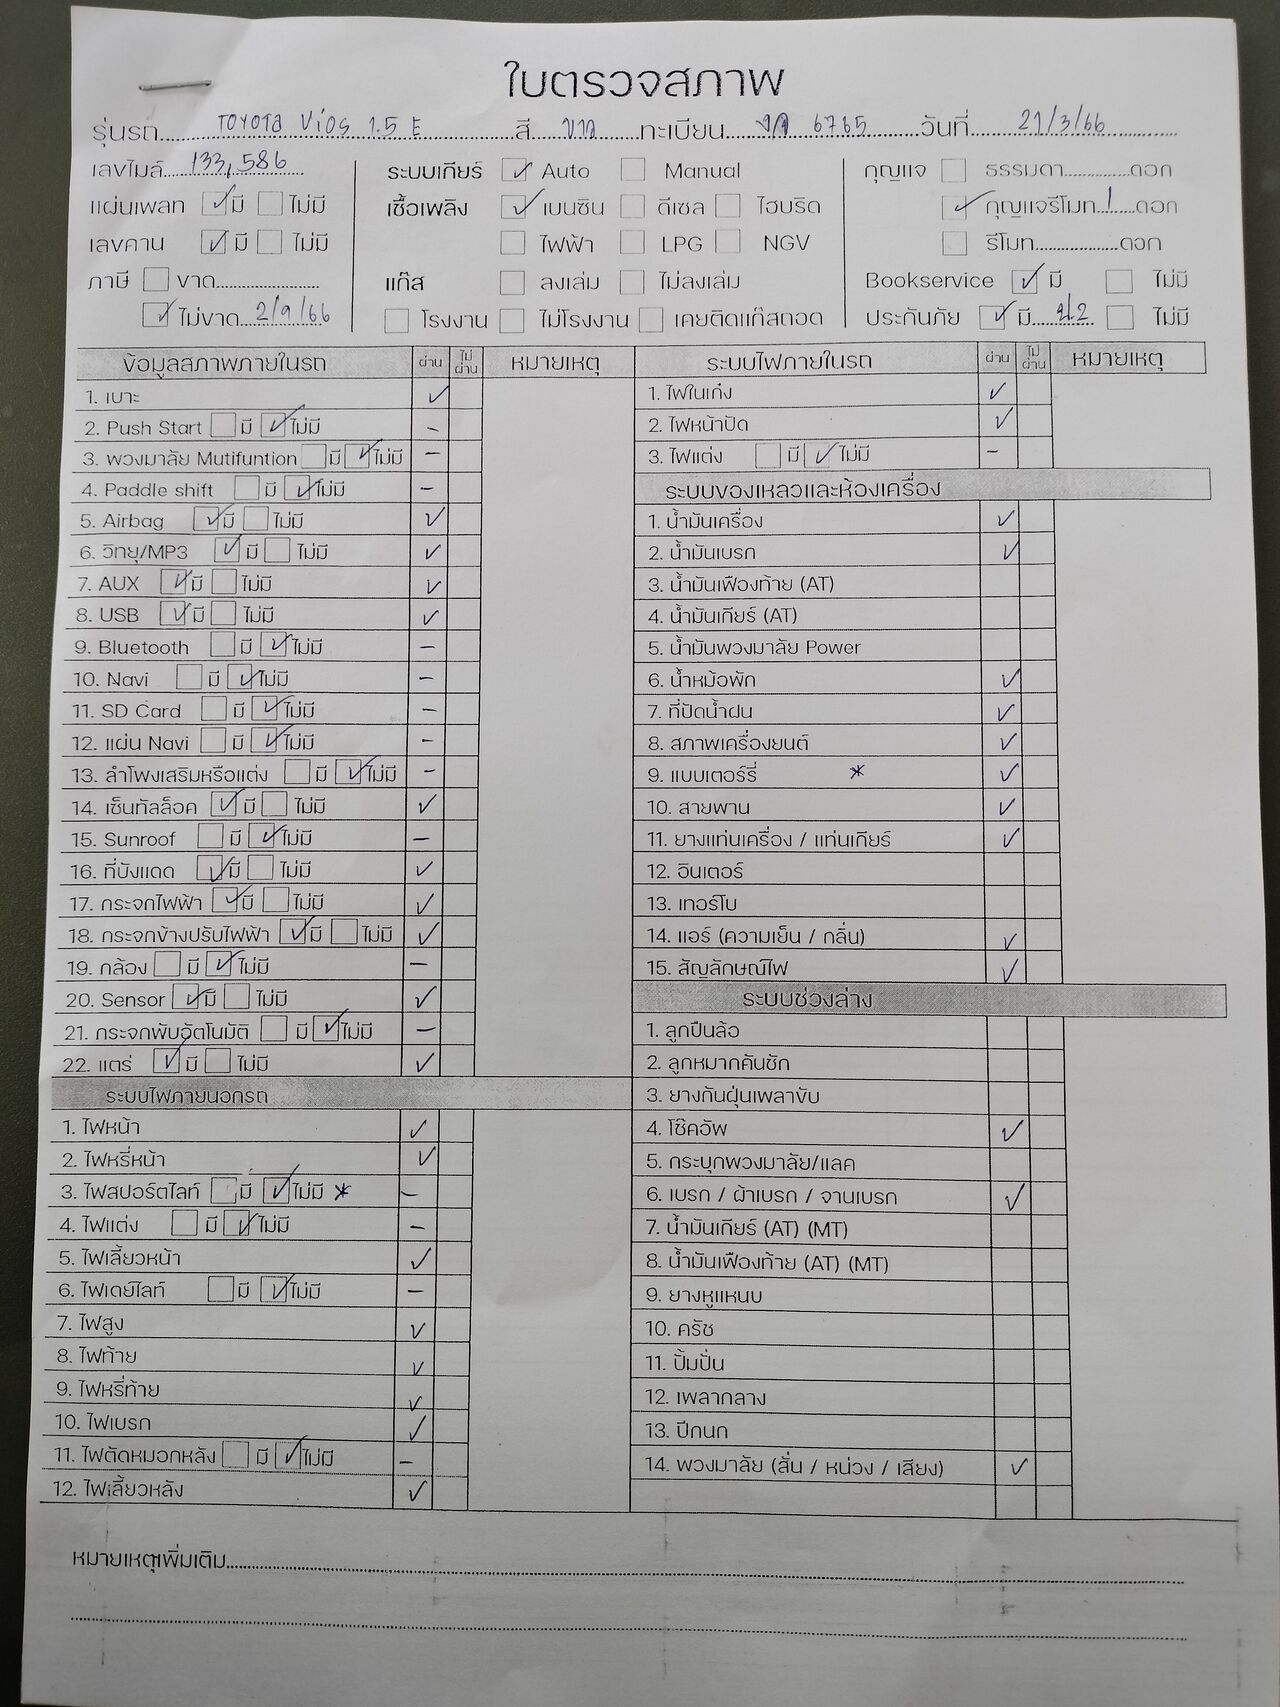 ใบตรวจสภาพ
รุ่นรถ TOYOTA Vios 1.5 E สี ขาว ทะเบียน 6765 วันที่ 21/3/66
เลขไมล์ 133,586 ระบบเกียร์ ✓ Auto Manual กุญแจ ธรรมดา ดอก
แผ่นเพลท ✓ มี ไม่มี เชื้อเพลิง ✓ เบนซิน ดีเซล ไฮบริด ✓ กุญแจรีโมท 1 ดอก
เลขคาน ✓ มี ไม่มี ไฟฟ้า LPG NGV รีโมท ดอก
ภาษี ขาด แก๊ส ลงเล่ม ไม่ลงเล่ม Bookservice ✓ มี ไม่มี
✓ ไม่ขาด 2/9/66 โรงงาน ไม่โรงงาน เคยติดแก๊สถอด ประกันภัย ✓ มี ป.2 ไม่มี
ข้อมูลสภาพภายในรถ ผ่าน ไม่ผ่าน หมายเหตุ
1. เบาะ ✓
2. Push Start มี ✓ ไม่มี -
3. พวงมาลัย Mutifuntion มี ✓ ไม่มี -
4. Paddle shift มี ✓ ไม่มี -
5. Airbag ✓ มี ไม่มี ✓
6. วิทยุ/MP3 ✓ มี ไม่มี ✓
7. AUX ✓ มี ไม่มี ✓
8. USB ✓ มี ไม่มี ✓
9. Bluetooth มี ✓ ไม่มี -
10. Navi มี ✓ ไม่มี -
11. SD Card มี ✓ ไม่มี -
12. แผ่น Navi มี ✓ ไม่มี -
13. ลำโพงเสริมหรือแต่ง มี ✓ ไม่มี -
14. เซ็นทัลล็อค ✓ มี ไม่มี ✓
15. Sunroof มี ✓ ไม่มี -
16. ที่บังแดด ✓ มี ไม่มี ✓
17. กระจกไฟฟ้า ✓ มี ไม่มี ✓
18. กระจกข้างปรับไฟฟ้า ✓ มี ไม่มี ✓
19. กล้อง มี ✓ ไม่มี -
20. Sensor ✓ มี ไม่มี ✓
21. กระจกพับอัตโนมัติ มี ✓ ไม่มี -
22. แตร่ ✓ มี ไม่มี ✓
ระบบไฟภายนอกรถ
1. ไฟหน้า ✓
2. ไฟหรี่หน้า ✓
3. ไฟสปอร์ตไลท์ มี ✓ ไม่มี * -
4. ไฟแต่ง มี ✓ ไม่มี -
5. ไฟเลี้ยวหน้า ✓
6. ไฟเดย์ไลท์ มี ✓ ไม่มี -
7. ไฟสูง ✓
8. ไฟท้าย ✓
9. ไฟหรี่ท้าย ✓
10. ไฟเบรก ✓
11. ไฟตัดหมอกหลัง มี ✓ ไม่มี -
12. ไฟเลี้ยวหลัง ✓
ระบบไฟภายในรถ ผ่าน ไม่ผ่าน หมายเหตุ
1. ไฟในเก๋ง ✓
2. ไฟหน้าปัด ✓
3. ไฟแต่ง มี ✓ ไม่มี -
ระบบของเหลวและห้องเครื่อง
1. น้ำมันเครื่อง ✓
2. น้ำมันเบรก ✓
3. น้ำมันเฟืองท้าย (AT)
4. น้ำมันเกียร์ (AT)
5. น้ำมันพวงมาลัย Power
6. น้ำหม้อพัก ✓
7. ที่ปัดน้ำฝน ✓
8. สภาพเครื่องยนต์ ✓
9. แบบเตอร์รี่ * ✓
10. สายพาน ✓
11. ยางแท่นเครื่อง / แท่นเกียร์ ✓
12. อินเตอร์
13. เทอร์โบ
14. แอร์ (ความเย็น / กลิ่น) ✓
15. สัญลักษณ์ไฟ ✓
ระบบช่วงล่าง
1. ลูกปืนล้อ
2. ลูกหมากคันชัก
3. ยางกันฝุ่นเพลาขับ
4. โช๊คอัพ ✓
5. กระบุกพวงมาลัย/แลค
6. เบรก / ผ้าเบรก / จานเบรก ✓
7. น้ำมันเกียร์ (AT) (MT)
8. น้ำมันเฟืองท้าย (AT) (MT)
9. ยางหูแหนบ
10. ครัช
11. ปั้มปั่น
12. เพลากลาง
13. ปีกนก
14. พวงมาลัย (สั่น / หน่วง / เสียง) ✓
หมายเหตุเพิ่มเติม